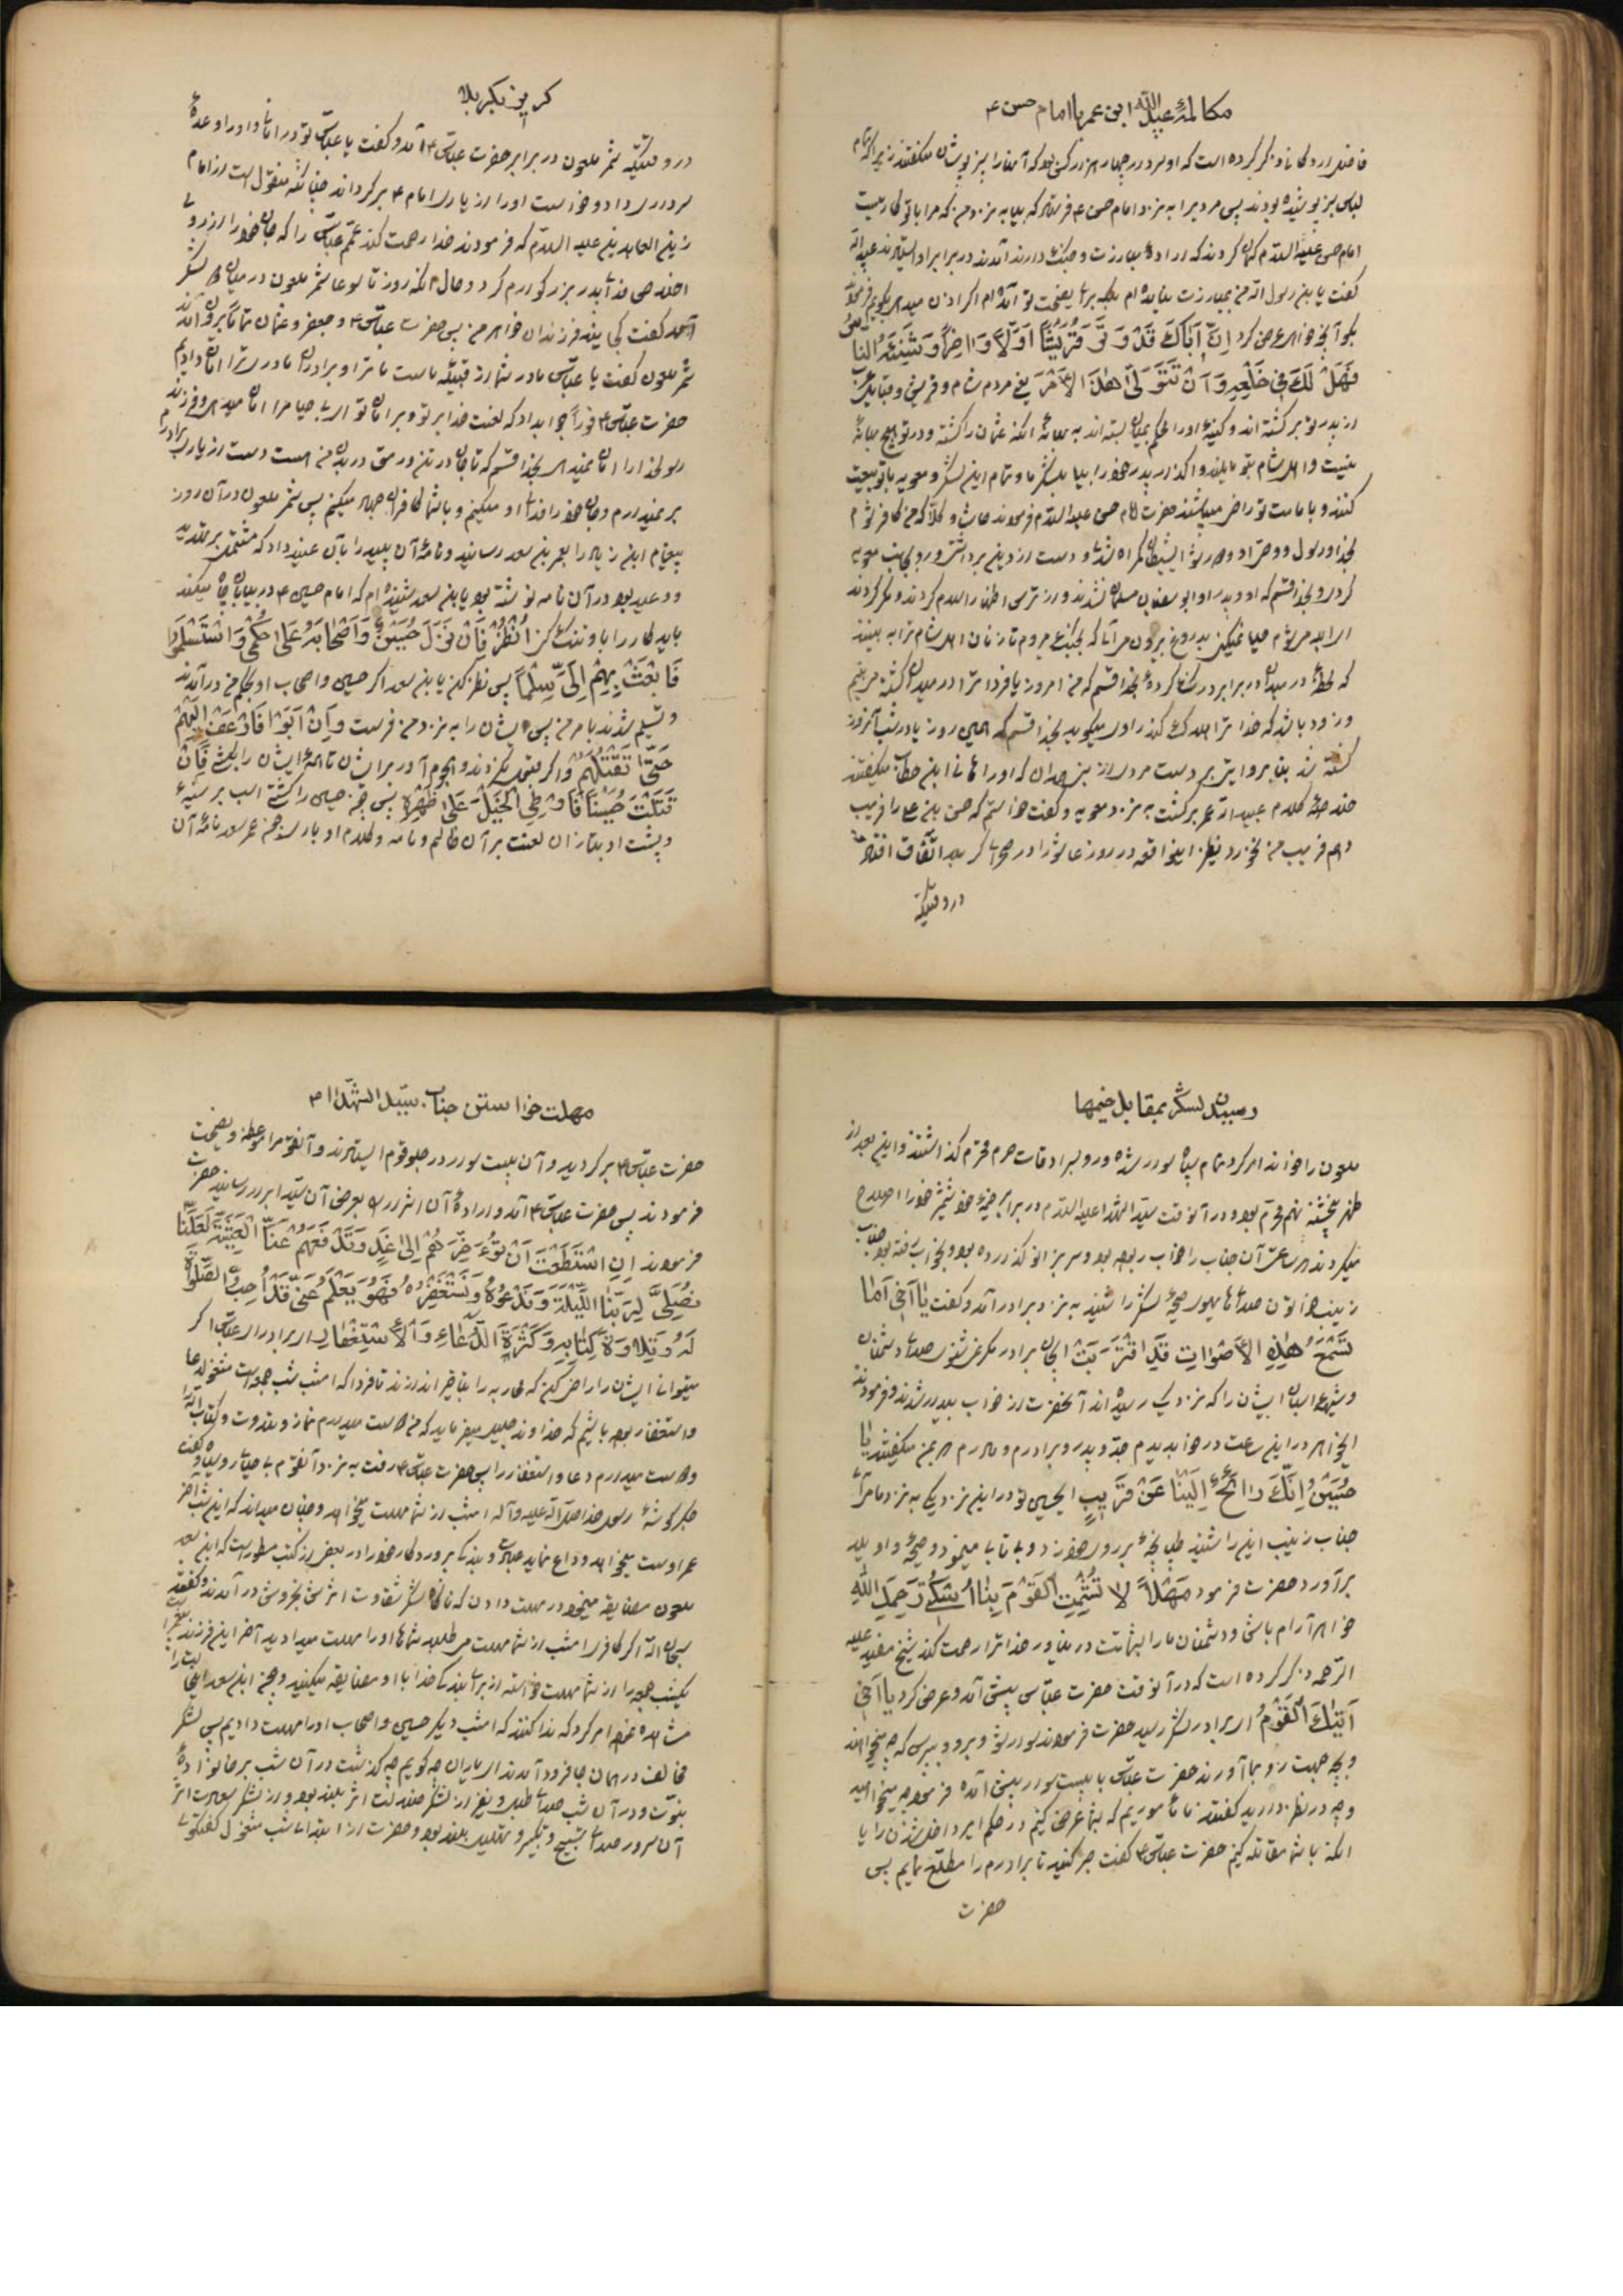 مکالمهٔ عبیدالله ابن عمر با امام حسن ع
فاضل اردکانی ذکر کرده است که او سردار چهار هزار کس بود که آنها را سبزپوشان میگفتند زیرا که تمام
لباس سبز پوشیده بودند پس مردیرا به نزد امام حسن ع فرستاد که بیا به نزد من که مرا با تو کاریست
امام حسن علیه السلام گمان کردند که اراده مبارزت و جنگ دارند آمدند در برابر او ایستادند عبیدالله
گفت یا بن رسول الله من بمبارزت نیامده ام بلکه برای نصیحت تو آمده ام اگر اذن میدهی بگویم فرمودند
بگو آنچه خواهی عرض کرد اِنَّ اَبٰاکَ قَدْ وَتَّرَ قُرَیْشاً اَوَّلاً وَ اٰخِراً وَ شَنِئَهُ النّٰاسُ
فَهَلْ لَکَ فِی خَلْعِهِ وَ اَنْ تَتَوَلّیٰ هٰذَا الْاَمْرَ یعنی مردم شام و قریش و قبایل عرب
از پدر تو برگشته اند و کینهٔ او را محکم بمیان بسته اند به بهانهٔ آنکه عثمان را کشته و در تو هیچ بهانهٔ
نیست و اهل شام بتو مایلند واگذار پدر خود را بیا بلشکر ما و تمام این لشکر و معویه با تو بیعت
کنند و بامامت تو راضی میباشند حضرت امام حسن علیه السلام فرمودند حاشا و کلا که من کافر شوم
بخدا و رسول و وصی او
کرده و بخدا قسم که او و پدر او ابوسفیان مسلمان نشدند و از ترس اظهار اسلام کردند و مکر کردند
که لحظهٔ در میدان در برابر درنگ کردهٔ بخدا قسم که من امروز یا فردا ترا در میدان کشته می بینم
و زود باشد که خدا ترا هلاک کند راوی میگوید بخدا قسم که همین روز یا در شب آنروز
کشته شد بنیزه و ایتر بر دست مردی از
خلاصهٔ کلام عبیدالله عمر برگشت به نزد معویه و گفت خواستم که حسن بن علی را فریب
دهم فریب من نخورد نظیر اینواقعه در روز عاشورا در صحرای کربلا اتفاق افتاد
در وقتیکه
کربنبکربلا
در وقتیکه شمر ملعون در برابر حضرت عباس ع آمد و گفت یا عباس تو در امانی و او را وعدهٔ
سرداری داد و خواست او را از یاری امام ع برگرداند چنانکه منقول است از امام
زین العابدین علیه السلام که فرمودند خدا رحمت کند عمم عباس را که جان خود را از روی
اخلاص فدای پدر بزرگوارم کرد و حال آنکه روز تاسوعا شمر ملعون در میان دو لشکر
آمد گفت کجایند فرزندان خواهر من پس حضرت عباس ع و جعفر و عثمان تماماً برون آمدند
شمر ملعون گفت یا عباس مادر شما از قبیلهٔ ماست ما ترا و برادران مادری ترا امان دادیم
حضرت عباس ع فوراً جواب داد که لعنت خدا بر تو و بر امان تو ای بی حیا مرا امان میدهی و فرزند
رسول خدا را امان نمیدهی بخدا قسم که تا جان در تن و رمق در بدن من هست دست از یاری برادرم
بر نمیدارم و جان خود را فدای او میکنم و با شما کافران جهاد میکنم پس شمر ملعون در آن روز
پیغام ابن زیاد را بعمر بن سعد رسانید و نامهٔ آن پلید را بآن عنید داد که مشتمل بر تهدید
و وعید بود در آن نامه نوشته بود یا بن سعد شنیده ام که امام حسین ع در بیابان چاه میکند
باید کار را باو تنگ کن اُنْظُرْ فَاِنْ نَزَلَ حُسَیْنٌ وَ اَصْحٰابَهُ عَلیٰ حُکْمِی وَ اسْتَسْلَمُوا
فَابْعَثْ بِهِمْ اِلَیَّ سِلْماً پس نظر کن یا بن سعد اگر حسین و اصحاب او بحکم من درآمدند
و تسلیم شدند بامر من پس ایشان را به نزد من فرست وَ اِنْ اَبَوْا فَازْحَفْ اِلَیْهِمْ
حَتّیٰ تَقْتُلَهُمْ و اگر قبول نکردند هجوم آور بر ایشان تا همهٔ ایشان را بکش فَاِنْ
قَتَلْتَ حُسَیْناً فَاَوْطِئِ الْخَیْلَ عَلیٰ ظَهْرِهِ پس چون حسین را کشتی اسب بر سینهٔ
و پشت او بتازان لعنت بر آن ظالم و نامه و کلام او باد چون عمر سعد نامهٔ آن
رسیدن لشکر بمقابل خیمها
ملعون را خواند امر کرد تمام سپاه سوار شده و رو بسرادقات حرم محترم گذاشتند و این بعد از
ظهر پنجشنبه نهم محرم بود و در آنوقت سید الشهدا علیه السلام در برابر خیمهٔ خود شمشیر خود را اصلاح
میکردند در ساعت آن جناب را خواب ربوده بود و سر بزانو گذارده بود و بخواب رفته بود جناب
زینب خواتون صدای هایهوی و صیحهٔ لشکر را شنید به نزد برادر آمد و گفت یٰا اَخِی اَمٰا
تَسْمَعُ هٰذِهِ الْاَصْوٰاتِ قَدِ اقْتَرَبَتْ ایجان برادر مگر نمیشنوی صدای دشمنان
و شیههٔ اسبان ایشان را که نزدیک رسیده اند آنحضرت از خواب بیدار شدند و فرمودند
ایخواهر در این ساعت در خواب دیدم جد و پدر و برادرم و مادرم را که بمن میگفتند یٰا
حُسَیْنُ اِنَّکَ رٰائِحٌ اِلَیْنٰا عَنْ قَرِیبٍ ایحسین تو در این نزدیکی به نزد ما می آئی
جناب زینب این را شنید طپانچهٔ بر روی خود زد و بی تابی مینمود و صیحهٔ واویلا
برآورد حضرت فرمود مَهْلاً لاٰ تُشْمِتِ الْقَوْمَ بِنٰا اُسْکُتِی رَحِمَکِ اللّٰهُ
خواهر آرام باش و دشمنان ما را بشماتت در میاور خدا ترا رحمت کند شیخ مفید علیه
الرحمه ذکر کرده است که در آنوقت حضرت عباس پیش آمد و عرض کرد یا اَخِی
اَتٰاکَ الْقَوْمُ ای برادر لشکر رسید حضرت فرمودند سوار شو و برو و بپرس که چه میخواهند
و بچه جهت رو بما آورند حضرت عباس با بیست سوار پیش آمده فرمود چه میخواهید
و چه در نظر دارید گفتند ما مأموریم که بشما عرض کنیم در حکم امیر داخل شدن را یا
آنکه با شما مقاتله کنیم حضرت عباس ع گفت صبر کنید تا برادرم را مطلع نمایم پس
حضرت
مهلت خواستن جناب سید الشهدا ع
حضرت عباس ع برگردید و آن بیست سوار در جلو قوم ایستادند و آنقوم را موعظه و نصیحت
فرمودند پس حضرت عباس ع آمد و ارادهٔ آن اشرار را بعرض آن سید ابرار رسانید حضرت
فرمودند اِنِ اسْتَطَعْتَ اَنْ تُؤَخِّرَهُمْ اِلیٰ غَدٍ وَ تَدْفَعَهُمْ عَنَّا الْعَشِیَّةَ لَعَلَّنٰا
نُصَلِّی لِرَبِّنَا اللَّیْلَةَ وَ نَدْعُوهُ وَ نَسْتَغْفِرُهُ فَهُوَ یَعْلَمُ اَنِّی قَدْ اُحِبُّ الصَّلوٰةَ
لَهُ وَ تِلٰاوَةَ کِتٰابِهِ وَ کَثْرَةَ الدُّعٰاءِ وَ الْاِسْتِغْفٰارِ ای برادر ای عباس اگر
میتوانی ایشان را راضی کن که محاربه را بتأخیر اندازند تا فردا که امشب شب جمعه است مشغول دعا
و استغفار بوده باشیم که خداوند جلیل میفرماید که من دوست میدارم نماز و تلاوت کتاب الله را
و دوست میدارم دعا و استغفار را پس حضرت عباس ع رفت به نزد آنقوم بی حیای روسیاه و گفت
جگرگوشهٔ رسول خدا صلی الله علیه و آله امشب از شما مهلت میخواهد و چنان میداند که این شب آخر
عمر اوست میخواهد وداع نماید عیال را و بندگی پروردگار خود را در بعضی از کتب مسطور است که ابن سعد
ملعون مضایقه مینمود در مهلت دادن که ناگاه لشکر شقاوت اثرش بخروش درآمدند و گفتند
سبحان الله اگر کافری امشب از شما مهلت میطلبید شماها او را مهلت میدادید آخر این فرزند پیغمبر است
یکشب جمعه را از شما مهلت خواسته از برای بندگی خدا با او مضایقه میکنید و چون ابن سعد اینحالت را
مشاهده نمود امر کرد که ندا کنند که امشب دیگر حسین و اصحاب او را مهلت دادیم پس لشکر
مخالف در همان جا فرود آمدند ای یاران چه گویم چه گذشت در آن شب بر خانوادهٔ
نبوت و در آن شب صدای طبل و نفیر از لشکر ضلالت اثر بلند بود و از لشکر سعادت اثر
آن سرور صدای تسبیح و تکبیر و تهلیل بلند بود و حضرت از ابتدای شب مشغول گفتگوی